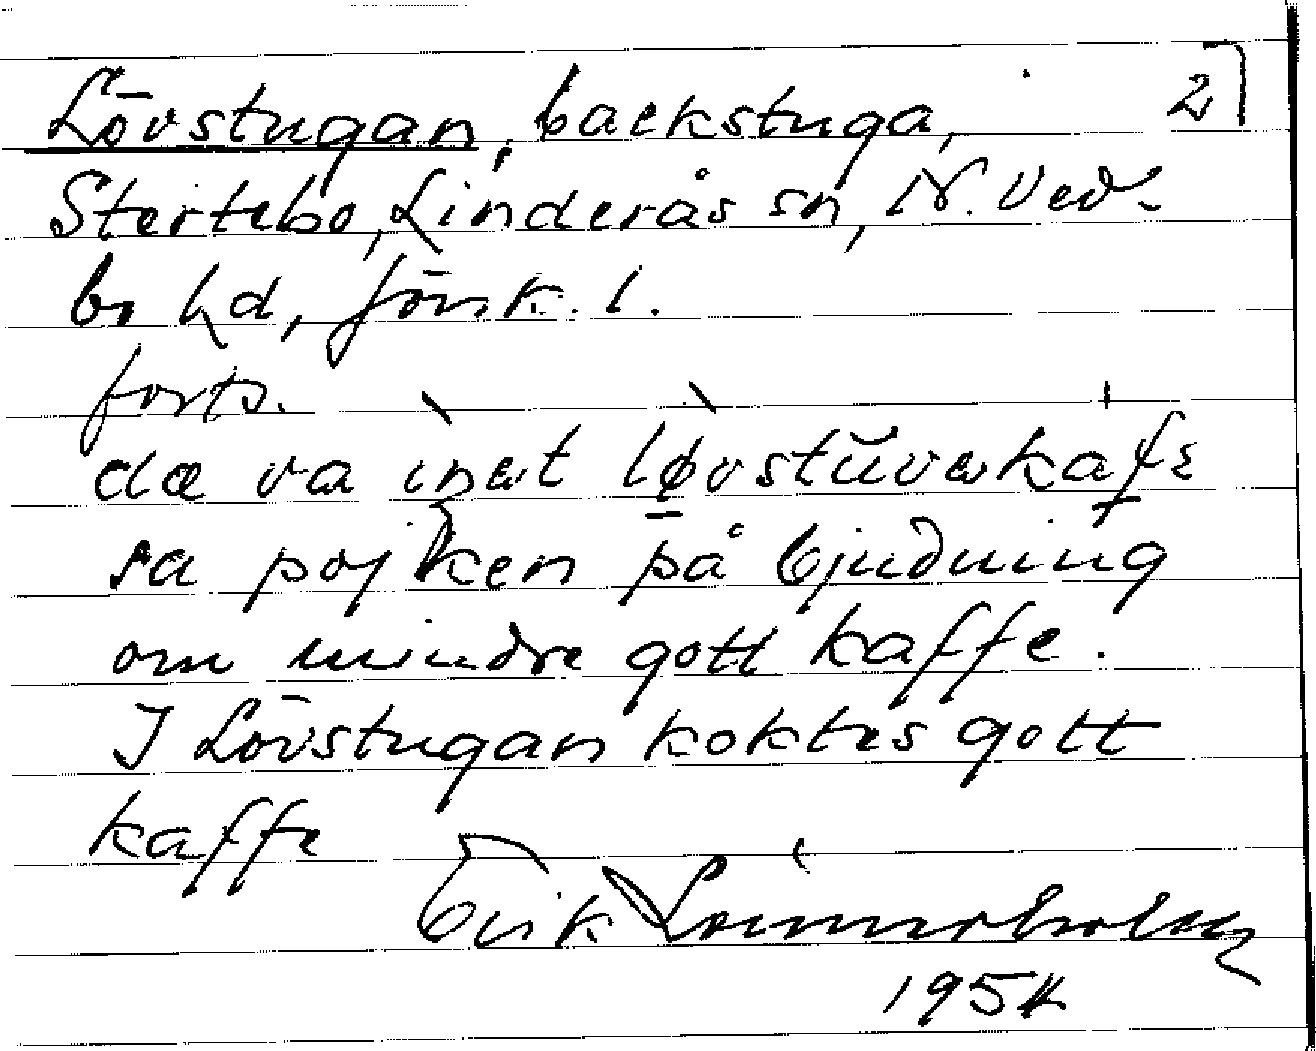 Lövstugan, backstuga, 2]
Stertebo, Linderås sn, N. Ved-
bo hd, Jönk. l.
forts.
dæ va ìnət løvstŭvəkafə
sa pojken på bjudning
om mindre gott kaffe.
I Lövstugan koktes gott
kaffe
Erik Lönnerholm
1954